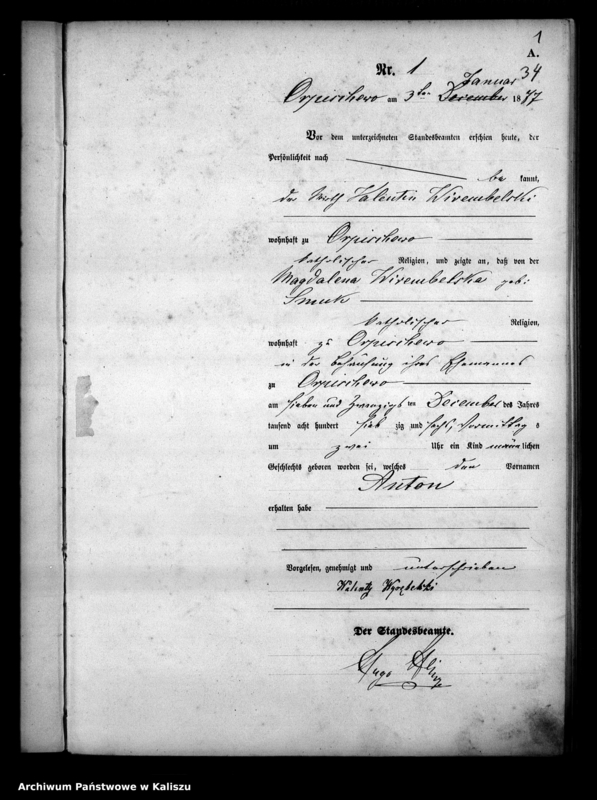 1
A.
34
Nr. 1
Januar
am 3ten December 1877
Vor dem unterzeichneten Standesbeamten erschien heute, der
Persönlichkeit nach
be kannt,
der Valentin Wirembelski
wohnhaft zu
katholischer Religion, und zeigte an, daß von der
Magdalena Wirembelska geb:
Smuk
katholischer Religion,
wohnhaft zu
in der Behausung ihres Ehemannes
zu
am sieben und zwanzigs ten December des Jahres
tausend acht hundert sieb zig und sechs, Vormittag s
um zwei Uhr ein Kind männlichen
Geschlechts geboren worden sei, welches den Vornamen
Anton
erhalten habe
Vorgelesen, genehmigt und unterschrieben
Der Standesbeamte.
Hugo
Archiwum Państwowe w Kaliszu